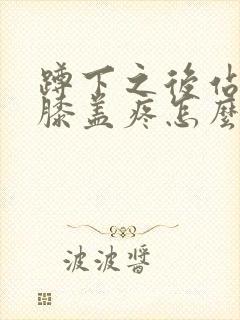 蹲下之後佔
膝盖疼怎麼
波波醬